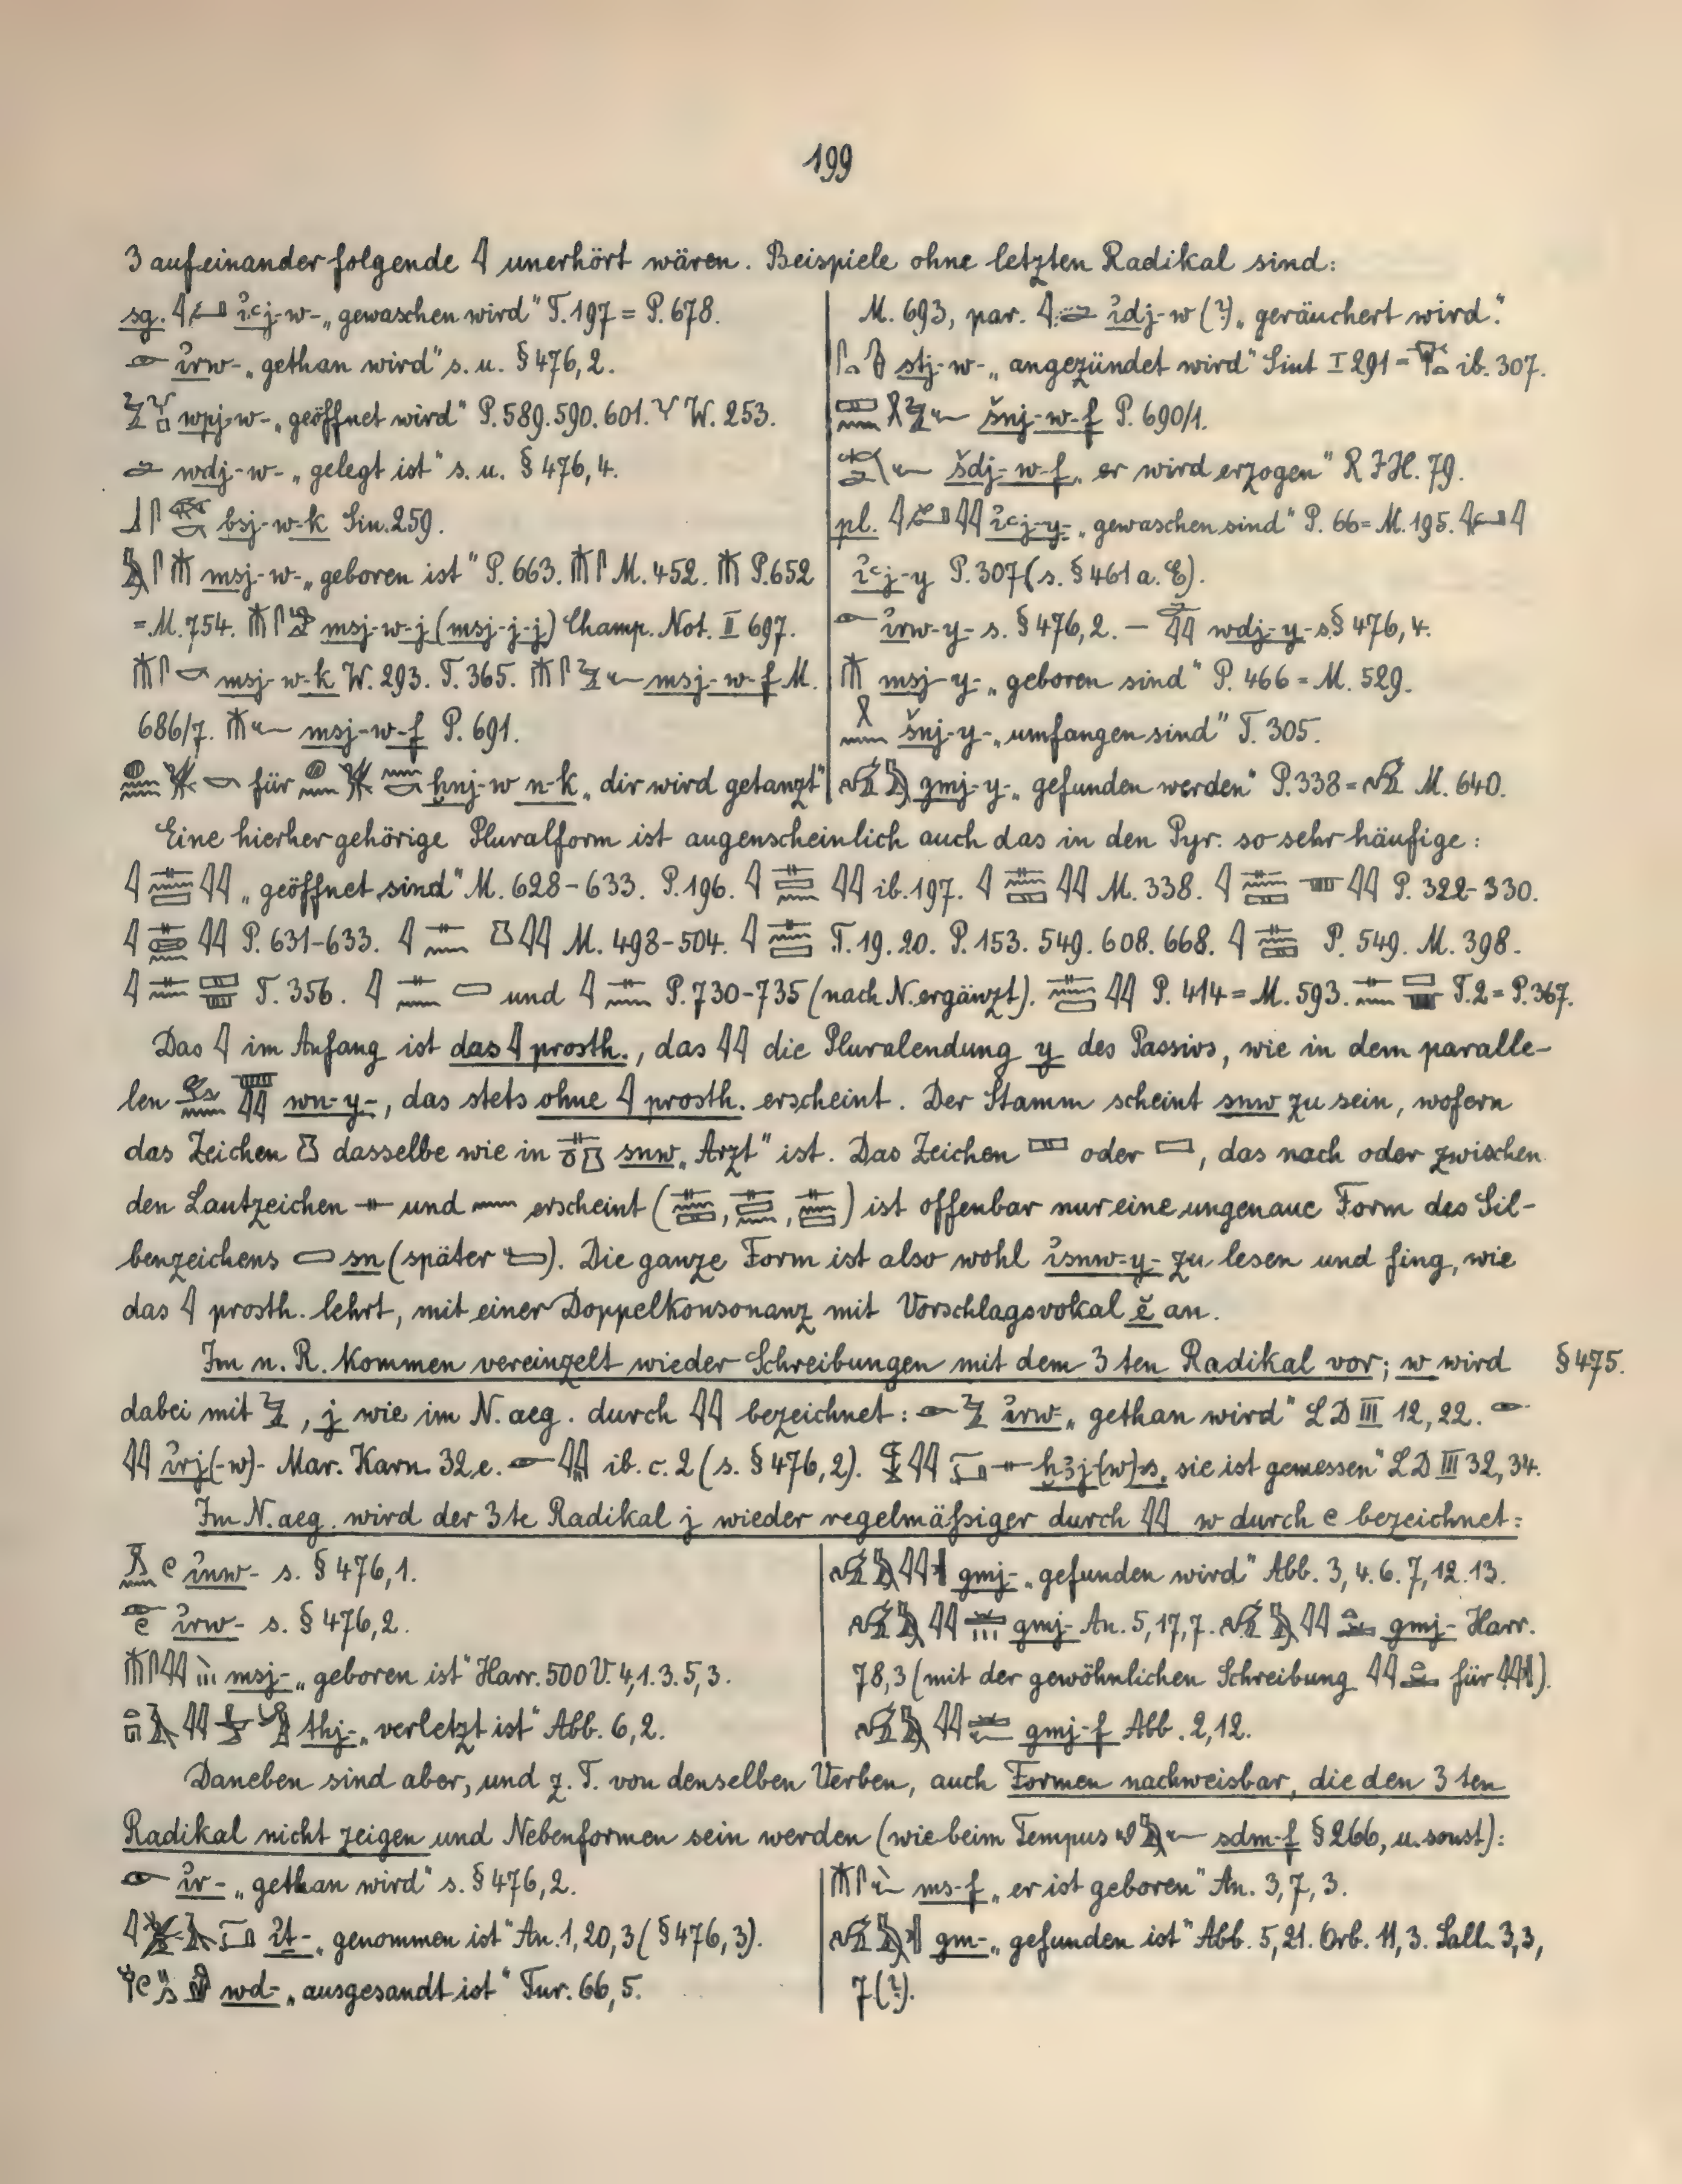 199
3 aufeinander folgende 𓇋 unerhört wären. Beispiele ohne letzten Radikal sind:
sg. i҆ꜥj-w- „gewaschen wird" T. 197 = P. 678.
i҆rw- „gethan wird" s. u. § 476, 2.
wpj-w- „geöffnet wird" P. 589. 590. 601. 𓄋 W. 253.
wdj-w- „gelegt ist" s. u. § 476, 4.
bsj-w-k Sin. 259.
msj-w- „geboren ist" P. 663. 𓄟𓋴 M. 452. 𓄟 P. 652
= M. 754. msj-w-j (msj-j-j) Champ. Not. II 697.
msj-w-k W. 293. T. 365. msj-w-f M.
686/7. msj-w-f P. 691.
für ḫnj-w n-k „dir wird getanzt"
M. 693, par. i҆dj-w (?) „geräuchert wird".
stj-w- „angezündet wird" Siut I 291 = ib. 307.
šnj-w-f P. 690/1.
šdj-w-f „er wird erzogen" R I H. 79.
pl. i҆ꜥj-y- „gewaschen sind" P. 66 = M. 195.
i҆ꜥj-y P. 307 (s. § 461 a. E).
i҆rw-y- s. § 476, 2. — wdj-y- s. § 476, 4.
msj-y- „geboren sind" P. 466 = M. 529.
šnj-y- „umfangen sind" T. 305.
gmj-y- „gefunden werden" P. 338 = M. 640.
Eine hierher gehörige Pluralform ist augenscheinlich auch das in den Pyr. so sehr häufige:
„geöffnet sind" M. 628-633. P. 196. ib. 197. M. 338. P. 322-330.
P. 631-633. M. 498-504. T. 19. 20. P. 153. 549. 608. 668. P. 549. M. 398.
T. 356. und P. 730-735 (nach N. ergänzt). P. 414 = M. 593. T. 2 = P. 367.
Das 𓇋 im Anfang ist das 𓇋 prosth., das 𓇋𓇋 die Pluralendung y des Passivs, wie in dem paralle-
len wn-y-, das stets ohne 𓇋 prosth. erscheint. Der Stamm scheint snw zu sein, wofern
das Zeichen dasselbe wie in snw „Arzt" ist. Das Zeichen oder, das nach oder zwischen
den Lautzeichen 𓊃 und 𓈖 erscheint ( , , ) ist offenbar nur eine ungenaue Form des Sil-
benzeichens sn (später ). Die ganze Form ist also wohl i҆snw-y- zu lesen und fing, wie
das 𓇋 prosth. lehrt, mit einer Doppelkonsonanz mit Vorschlagsvokal ĕ an.
Im n. R. kommen vereinzelt wieder Schreibungen mit dem 3ten Radikal vor; w wird § 475.
dabei mit 𓅱, j wie im N. aeg. durch 𓇋𓇋 bezeichnet: i҆rw- „gethan wird" LD III 12, 22.
𓇋𓇋 i҆rj(-w)- Mar. Karn. 32 e. ib. c. 2 (s. § 476, 2). ḫꜣj(w)-s „sie ist gemessen" LD III 32, 34.
Im N. aeg. wird der 3te Radikal j wieder regelmäßiger durch 𓇋𓇋 w durch 𓏲 bezeichnet:
i҆nw- s. § 476, 1.
i҆rw- s. § 476, 2.
msj- „geboren ist" Harr. 500 V. 4, 1. 3. 5, 3.
thj- „verletzt ist" Abb. 6, 2.
gmj- „gefunden wird" Abb. 3, 4. 6. 7, 12. 13.
gmj- An. 5, 17, 7. gmj- Harr.
78, 3 (mit der gewöhnlichen Schreibung für ).
gmj-f Abb. 2, 12.
Daneben sind aber, und z. T. von denselben Verben, auch Formen nachweisbar, die den 3ten
Radikal nicht zeigen und Nebenformen sein werden (wie beim Tempus sdm-f § 266, u. sonst):
i҆r- „gethan wird" s. § 476, 2.
i҆t- „genommen ist" An. 1, 20, 3 (§ 476, 3).
wd- „ausgesandt ist" Tur. 66, 5.
ms-f „er ist geboren" An. 3, 7, 3.
gm- „gefunden ist" Abb. 5, 21. Orb. 11, 3. Sall. 3, 3,
7 (?).